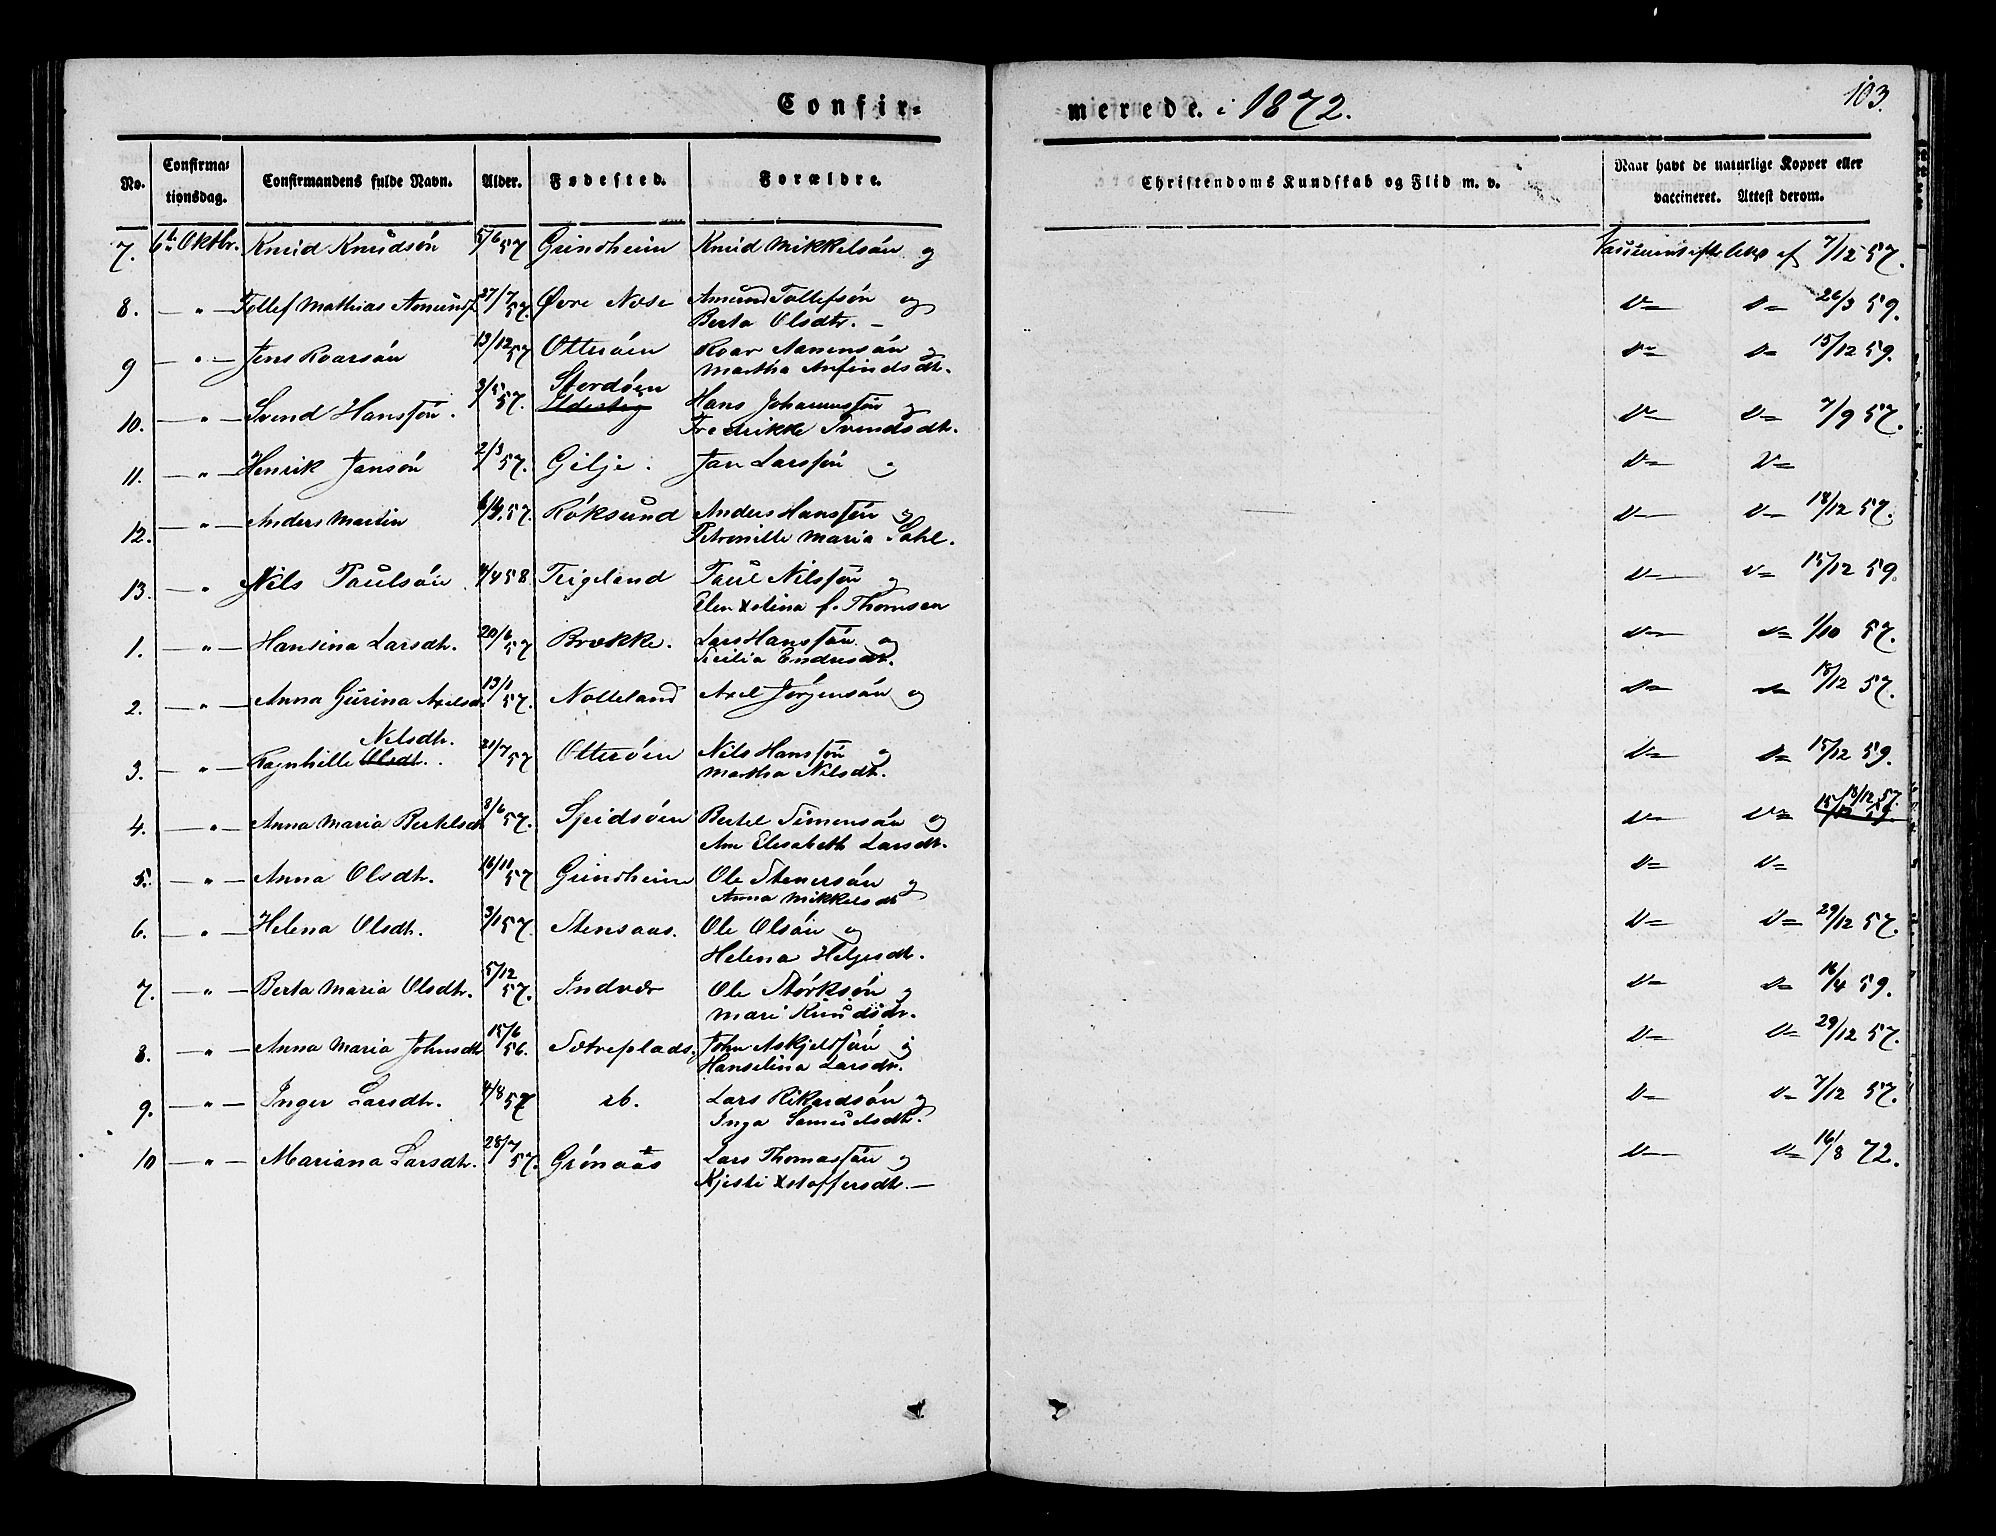 Confir=
merede. i 1872.
103.
No. Confirma=tionsdag. Confirmandens fulde Navn. Alder. Fødested. Forældre. Christendoms Kundskab og Flid m. v. Naar havt de naturlige Kopper eller vaccineret. Attest derom.
7. 6te Oktbr. Knud Knudsøn 5/6 57 Grindheim Knud Mikkelsøn og 7/12 57.
8. — " — Tollef Mathias Amunds. 27/7 57. Øvre Næse Amund Tollefsøn og
Berta Olsdtr. — D= D= 26/3 59.
9 — " — Jens Roarsøn 13/12 57 Otterøen Roar Aanensøn og
Martha Anfindsdtr. D= D= 15/12 59.
10. — " — Svend Hansson. 3/5 57. Stordøen Hans Johannesson og
Fredrikke Svendsdtr. D= D= 7/9 57.
11. — " — Henrik Jansøn 2/3 57. Gilje. Jan Larsson og D= D=
12. — " — Anders Martin 57. Røksund Anders Hansson og
Petronille Maria Dahl. D= D= 18/12 57.
13. — " — Nils Paulsøn 4/4 58. Teigeland Paul Nilsson og
Elen Xstina f. Thomsen D= D= 15/12 59.
1. — " — Hansina Larsdtr. 20/6 57 Brække. Lars Hansson og
Sicilia Endresdtr. D= D= 1/10 57.
2. — " — Anna Gurina Axelsdtr. 13/11 57. Nolteland Axel Jørgensøn og D= D= 18/12 57.
3. — " — Ragnhille Olsdt. Nilsdtr. 21/7 57 Otterøen Nils Hansson og
Martha Nilsdtr. D= D= 15/12 59.
4. — " — Anna Maria Bertelsdtr 8/6 57. Spidsøen Bertel Simensøn og
Ane Elisabeth Larsdtr. D= D= 15/12 59 18/12 57.
5. — " — Anna Olsdtr. 16/11 57 Grindheim Ole Stenersøn og
Anna Mikkelsdtr D= D=
6. — " — Helena Olsdtr. 3/1 57. Stensaas. Ole Olsøn og
Helena Helgesdtr. D= D= 29/12 57.
7. — " — Berta Maria Olsdtr. 5/12 57. Indvær Ole Størksøn og
Mari Knudsdtr. D= D= 16/4 59.
8. — " — Anna Maria Johnsdtr 15/6 56. Sætreplads. John Askjeldson og
Hanselina Larsdtr. D= D= 29/12 57.
9. — " — Inger Larsdtr. 4/8 57 ib. Lars Rikardsøn og
Inga Samuelsdtr. D= D= 7/12 57.
10 — " — Mariana Larsdtr. 28/7 57. Grønaas Lars Thomasson og
Kjersti Xstoffersdtr. — D= D= 16/8 72.